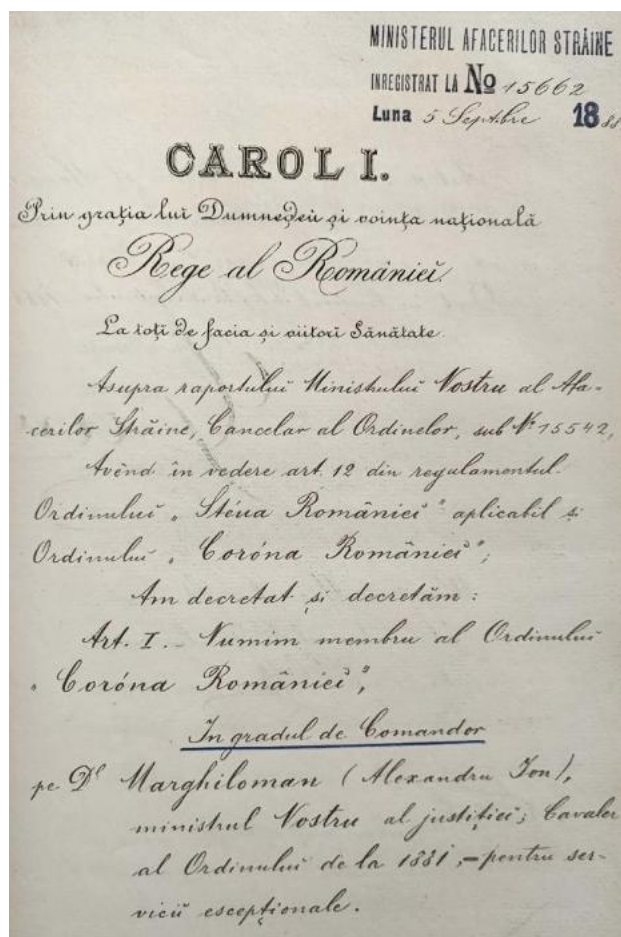 MINISTERUL AFACERILOR STRĂINE
INREGISTRAT LA No 15662
Luna 5 Septbre 1888
CAROL I.
Prin grația lui Dumneḑeŭ și voința națională
Rege al Româniеĭ.
La toți de facia și viitorĭ Sănătate.
Asupra raportuluĭ Ministruluĭ Nostru al Afa-
cerilor Străine, Cancelar al Ordinelor, sub No 15542,
Avênd în vedere art. 12 din regulamentul
Ordinuluĭ „Steua Românieĭ" aplicabil și
Ordinuluĭ „Coróna Românieĭ";
Am decretat și decretăm:
Art. I. — Numim membru al Ordinuluĭ
„Coróna Românieĭ",
In gradul de Comandor
pe Dl Marghiloman (Alexandru Ion),
ministrul Nostru al justițieĭ; Cavaler
al Ordinuluĭ de la 1881, — pentru ser-
viciĭ escepționale.